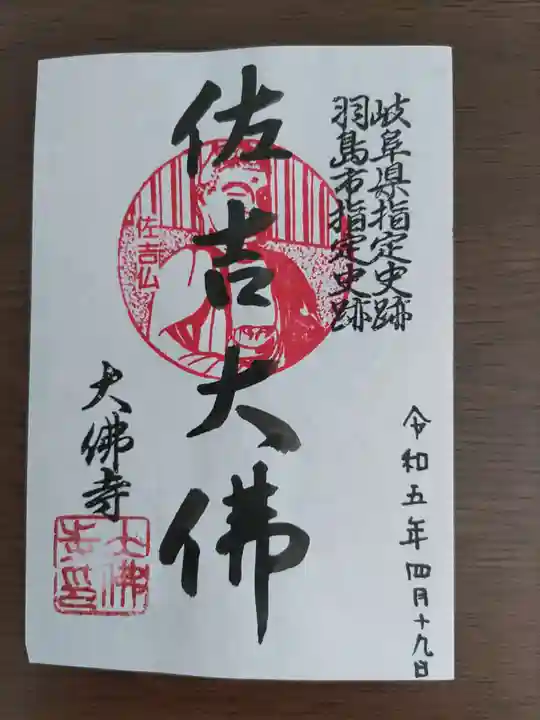 岐阜県指定史跡
羽島市指定史跡
佐吉大佛
佐吉仏
大佛寺
令和五年四月十九日
大佛
寺印